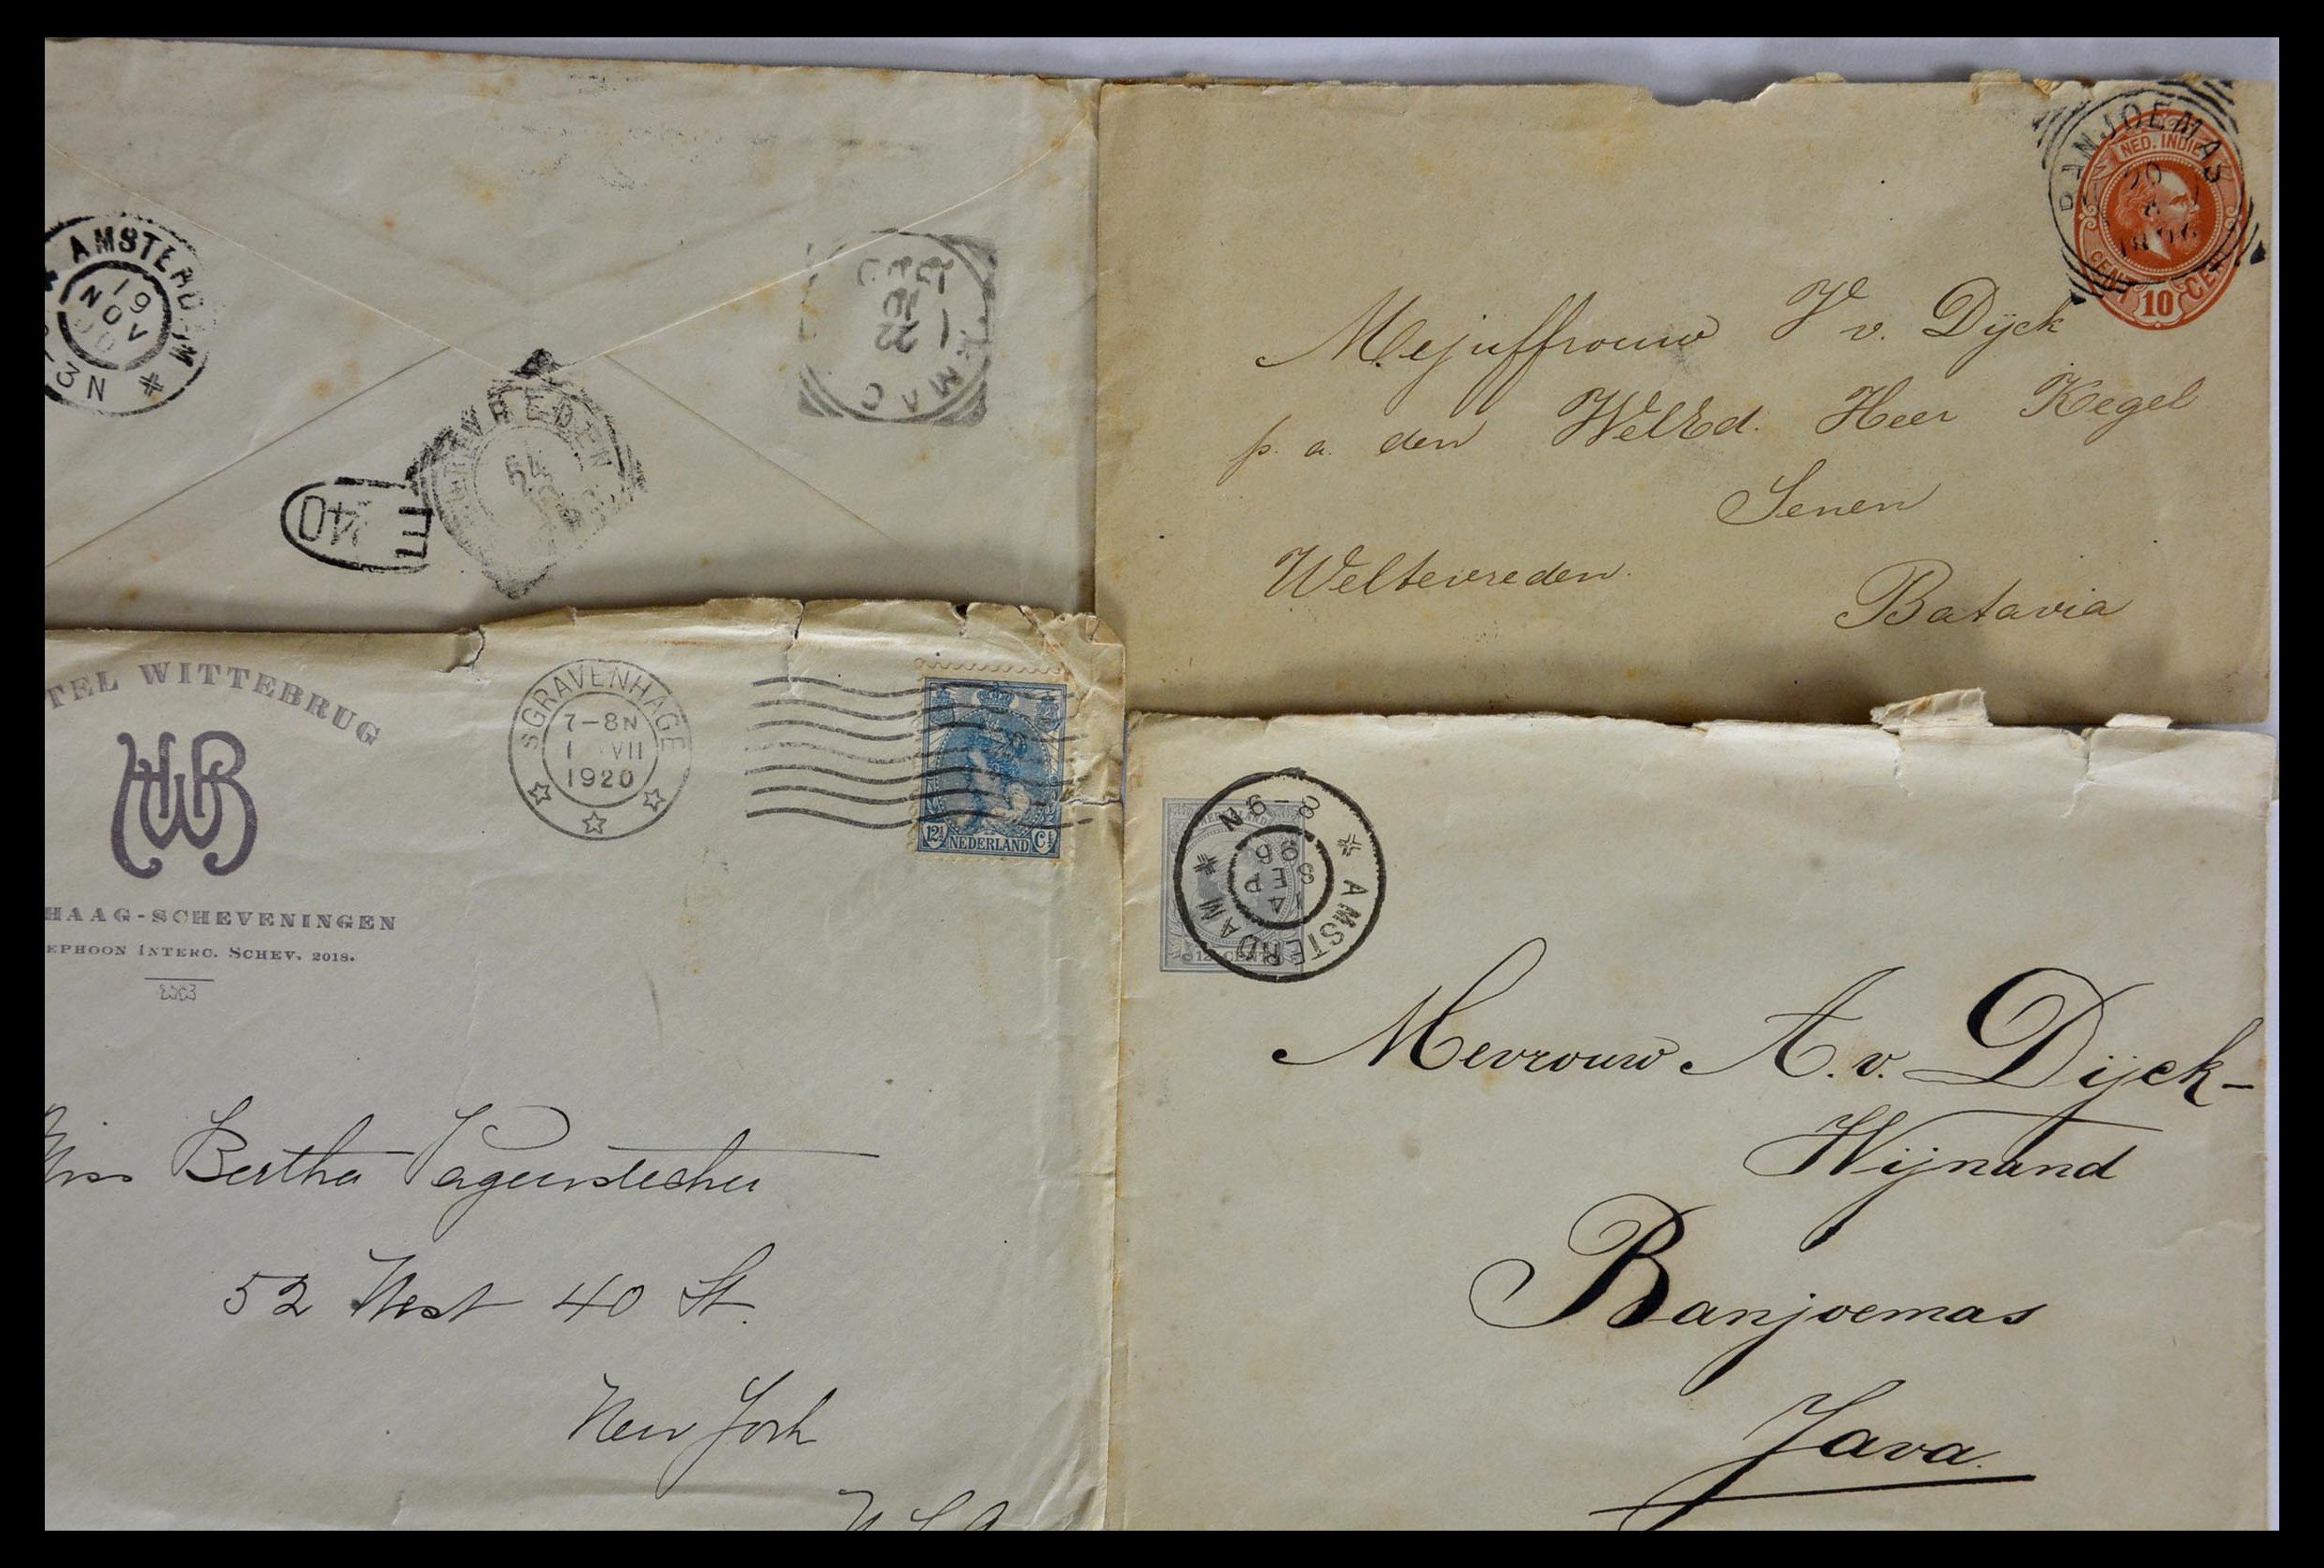 AMSTERDAM
19
NOV
3N
E
40
22
10
BANJOEMAS
NED. INDIE
20
8
CENT 10 CENT
Mejuffrouw V v. Dijck
p. a. den WelEd. Heer Kegel
Senen
Weltevreden.
Batavia
TEL WITTEBRUG
HWB
HAAG-SCHEVENINGEN
EPHOON INTERC. SCHEV. 2018.
SGRAVENHAGE
7-8N
1 VII
1920
12½ NEDERLAND Ct
Miss Bertha Pagenstecher
52 West 40 St.
New York
U S A
AMSTERDAM
8-9N
14
SEP
96
12½ CENT
Mevrouw A. v. Dijck-
Wijnand
Banjoemas
Java.